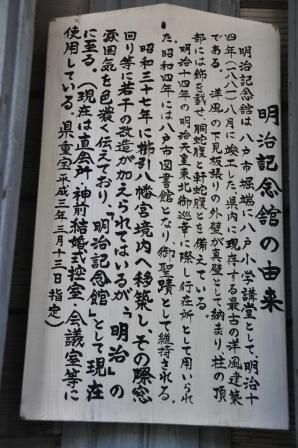 明治記念館の由来
明治記念館は八戸市堀端に八戸小学講堂として明治十
四年(一八八一)八月に竣工した県内に現存する最古の洋風建築
である。洋風の下見板張りの外壁が真壁として納まり柱の頂
部には飾を載せ、胴蛇腹と軒蛇腹とを備えている。
明治十四年の明治天皇東北御巡幸に際し行在所として用いられ
た。昭和四年には八戸市図書館となり、御聖蹟として維持される。
昭和三十七年に櫛引八幡宮境内へ移築し、その際窓
回り等に若干の改造が加えられてはいるが「明治」の
雰囲気を色濃く伝えており、「明治記念館」として現在
に至る。(現在は直会所・神前結婚式控室・会議室等に
使用している。県重宝平成三年三月十三日指定)